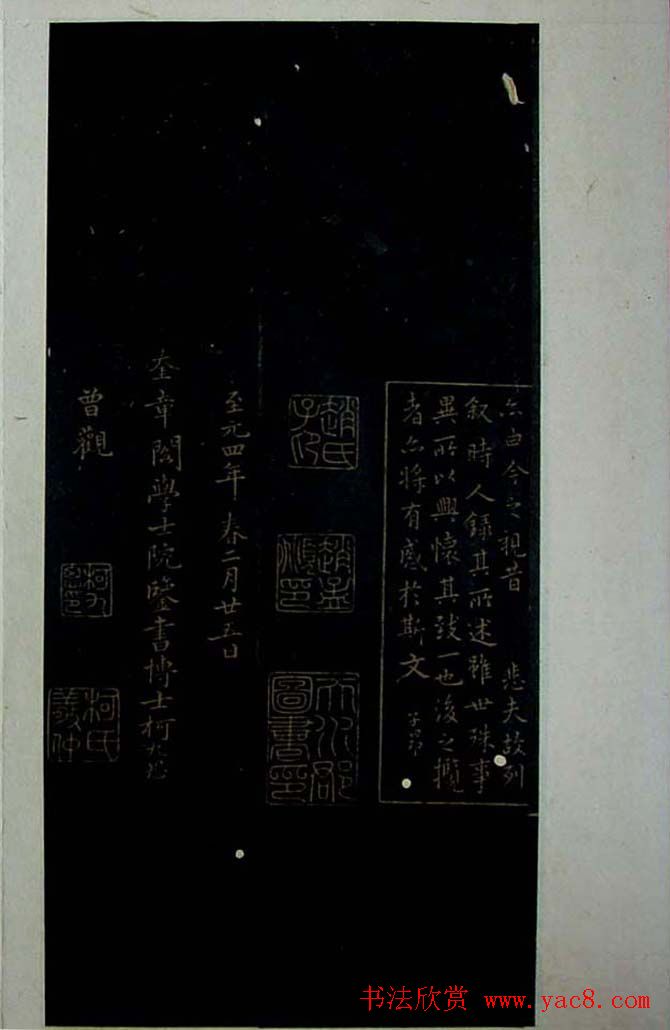 亦由今之視昔 悲夫故列
叙時人錄其所述雖世殊事
異所以興懷其致一也後之攬
者亦將有感於斯文 子昂
趙氏子昂
趙孟頫印
天水郡圖書印
至元四年春二月廿五日
奎章閣學士院鑒書博士柯九思
曾觀
柯九思印
柯氏敬仲
书法欣赏 www.yac8.com